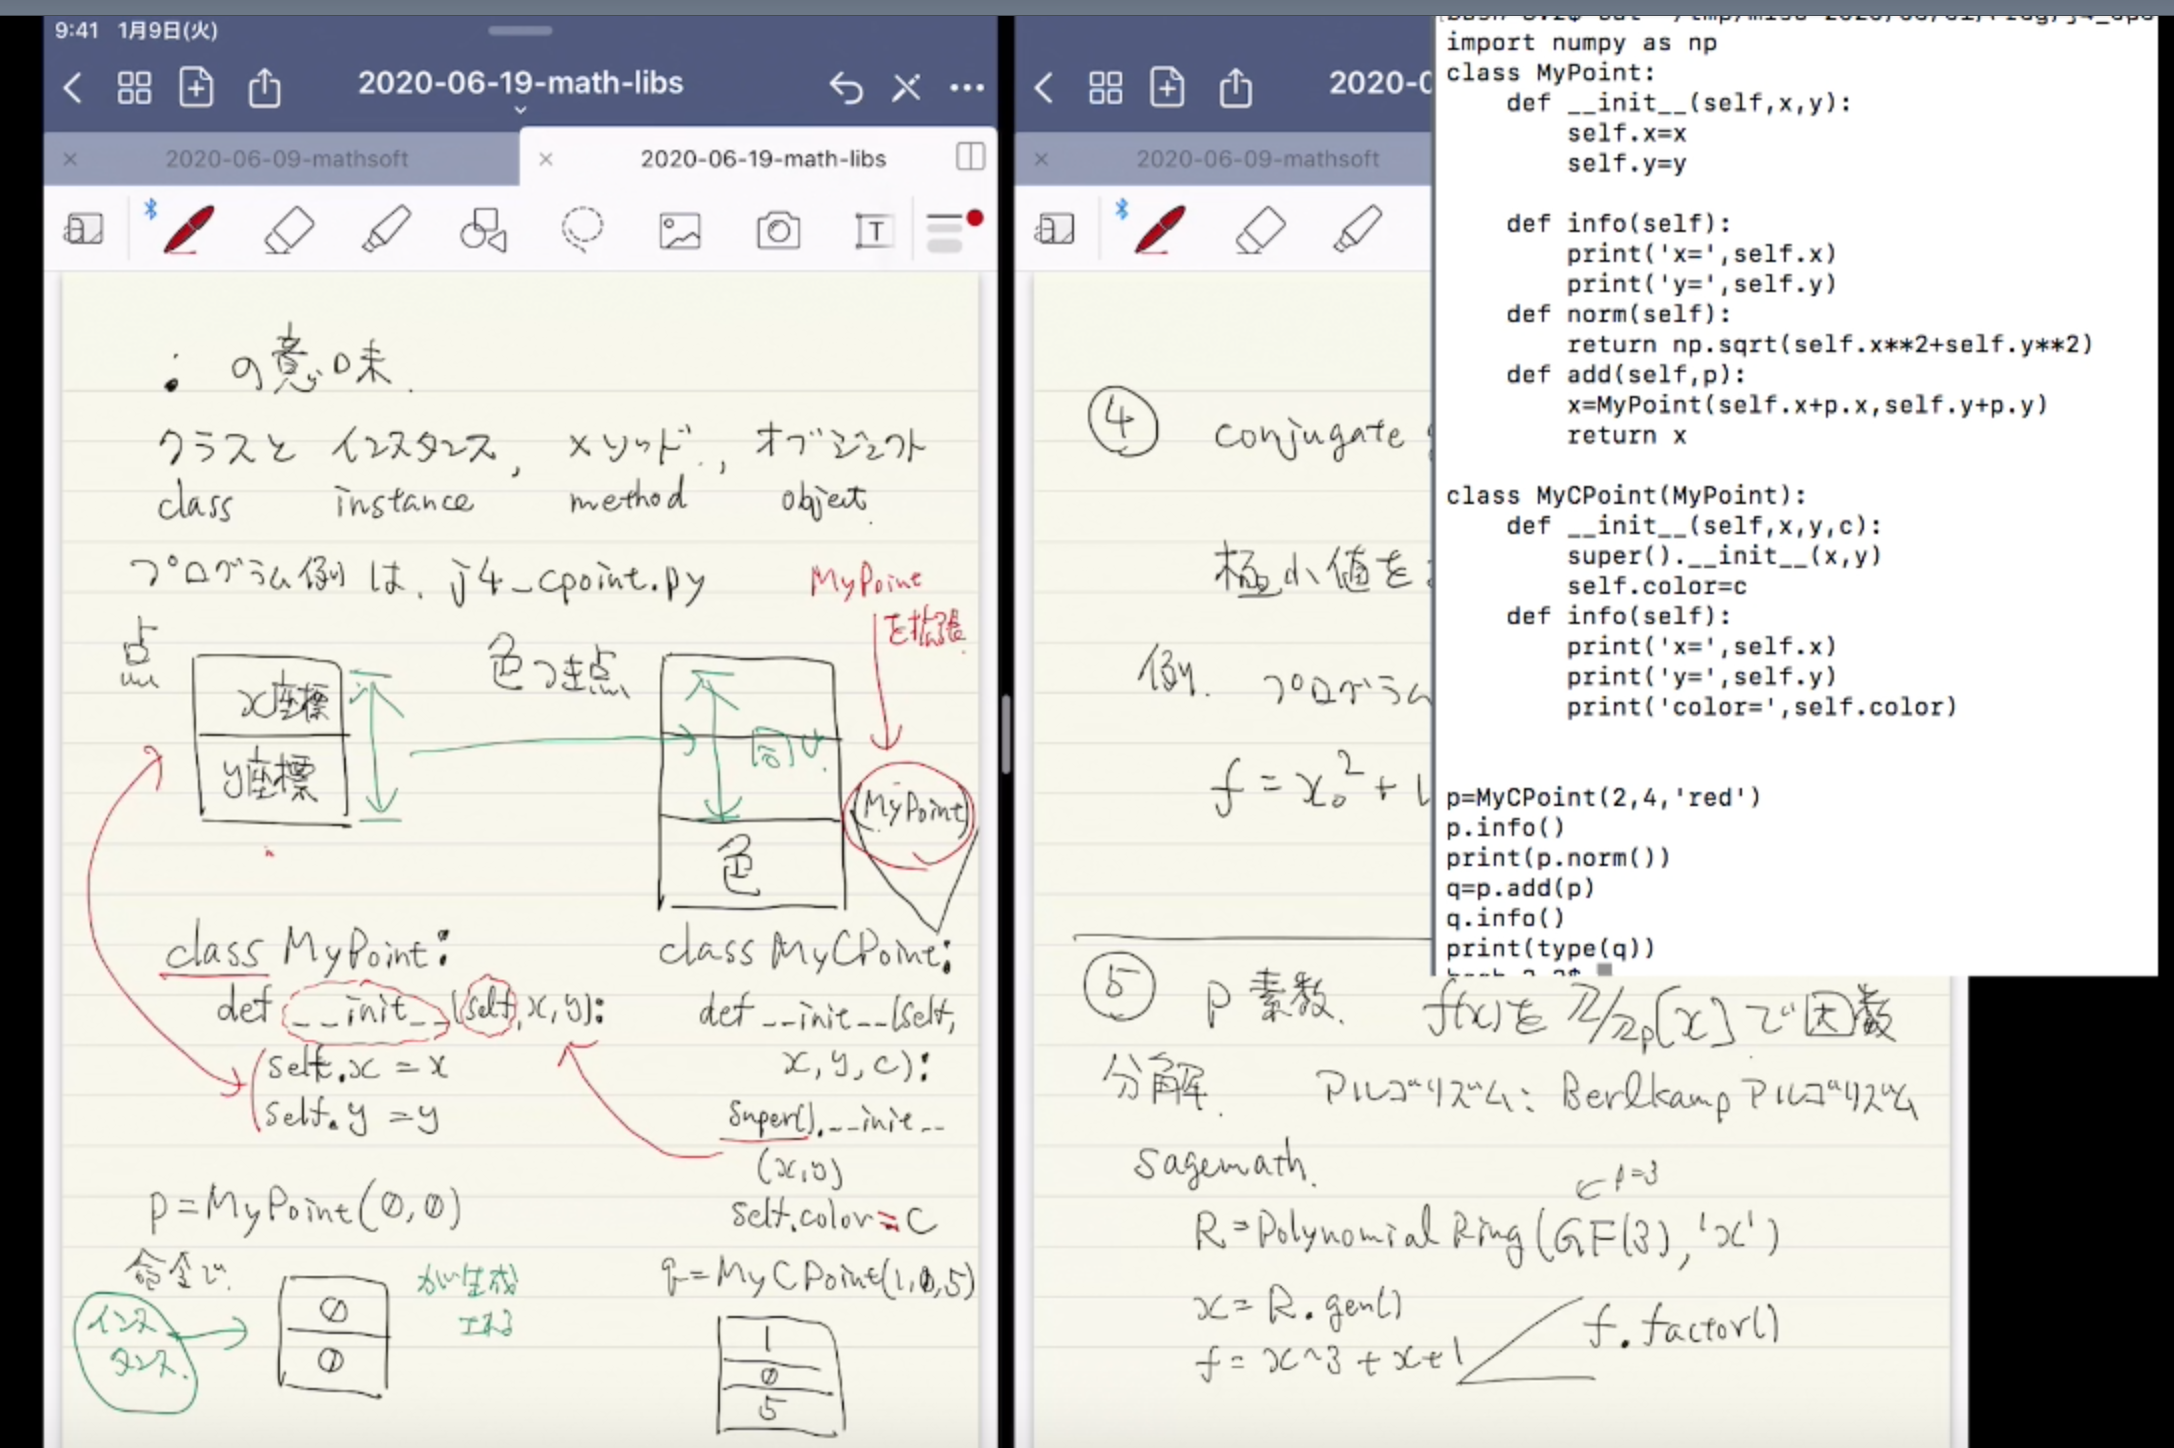 9:41 1月9日(火)
2020-06-19-math-libs
2020-06-09-mathsoft
2020-06-19-math-libs
: の意味.
クラスと インスタンス, メソッド, オブジェクト
class instance method object.
プログラム例は, j4_cpoint.py
MyPoint
を拡張
点
x座標
y座標
色つき点
同じ
色
(MyPoint)
class MyPoint:
def __init__(self,x,y):
self.x = x
self.y = y
p=MyPoint(0,0)
命令で.
インス
タンス.
0
0
が生成
される
class MyCPoint:
def __init__(self,
x,y,c):
super().__init__
(x,y)
self.color=c
q=MyCPoint(1,0,5)
1
0
5
2020-0
2020-06-09-mathsoft
④ conjugate
極小値を
例. プログラム
f = x₀² +
⑤ p 素数. f(x)を Z/Zp[x]で因数
分解. アルゴリズム: Berlkampアルゴリズム
sagemath.
p=3
R=Polynomial Ring(GF(3),'x')
x=R.gen()
f=x^3+x+1
f.factor()
import numpy as np
class MyPoint:
    def __init__(self,x,y):
        self.x=x
        self.y=y
    def info(self):
        print('x=',self.x)
        print('y=',self.y)
    def norm(self):
        return np.sqrt(self.x**2+self.y**2)
    def add(self,p):
        x=MyPoint(self.x+p.x,self.y+p.y)
        return x
class MyCPoint(MyPoint):
    def __init__(self,x,y,c):
        super().__init__(x,y)
        self.color=c
    def info(self):
        print('x=',self.x)
        print('y=',self.y)
        print('color=',self.color)
p=MyCPoint(2,4,'red')
p.info()
print(p.norm())
q=p.add(p)
q.info()
print(type(q))